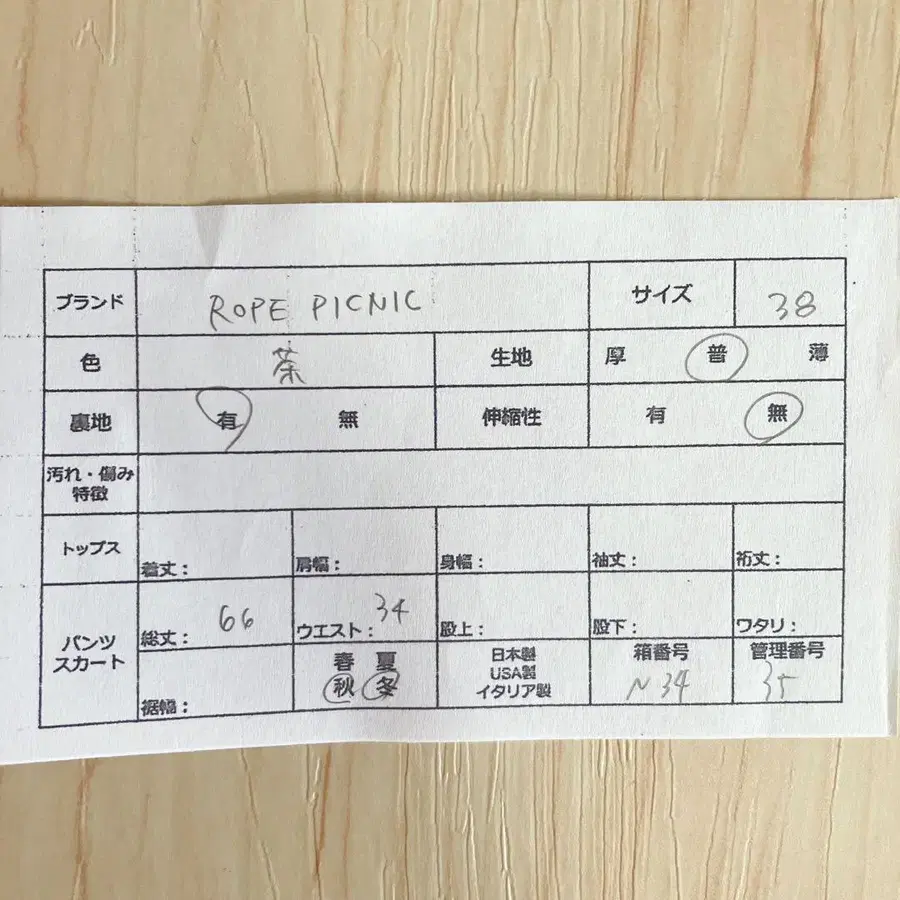 ブランド ROPE PICNIC サイズ 38
色 茶 生地 厚 普 薄
裏地 有 無 伸縮性 有 無
汚れ・傷み
特徴
トップス 着丈： 肩幅： 身幅： 袖丈： 裄丈：
パンツ
スカート
総丈： 66 ウエスト： 34 股上： 股下： ワタリ：
裾幅：
春 夏
秋 冬
日本製
USA製
イタリア製
箱番号
N34
管理番号
35